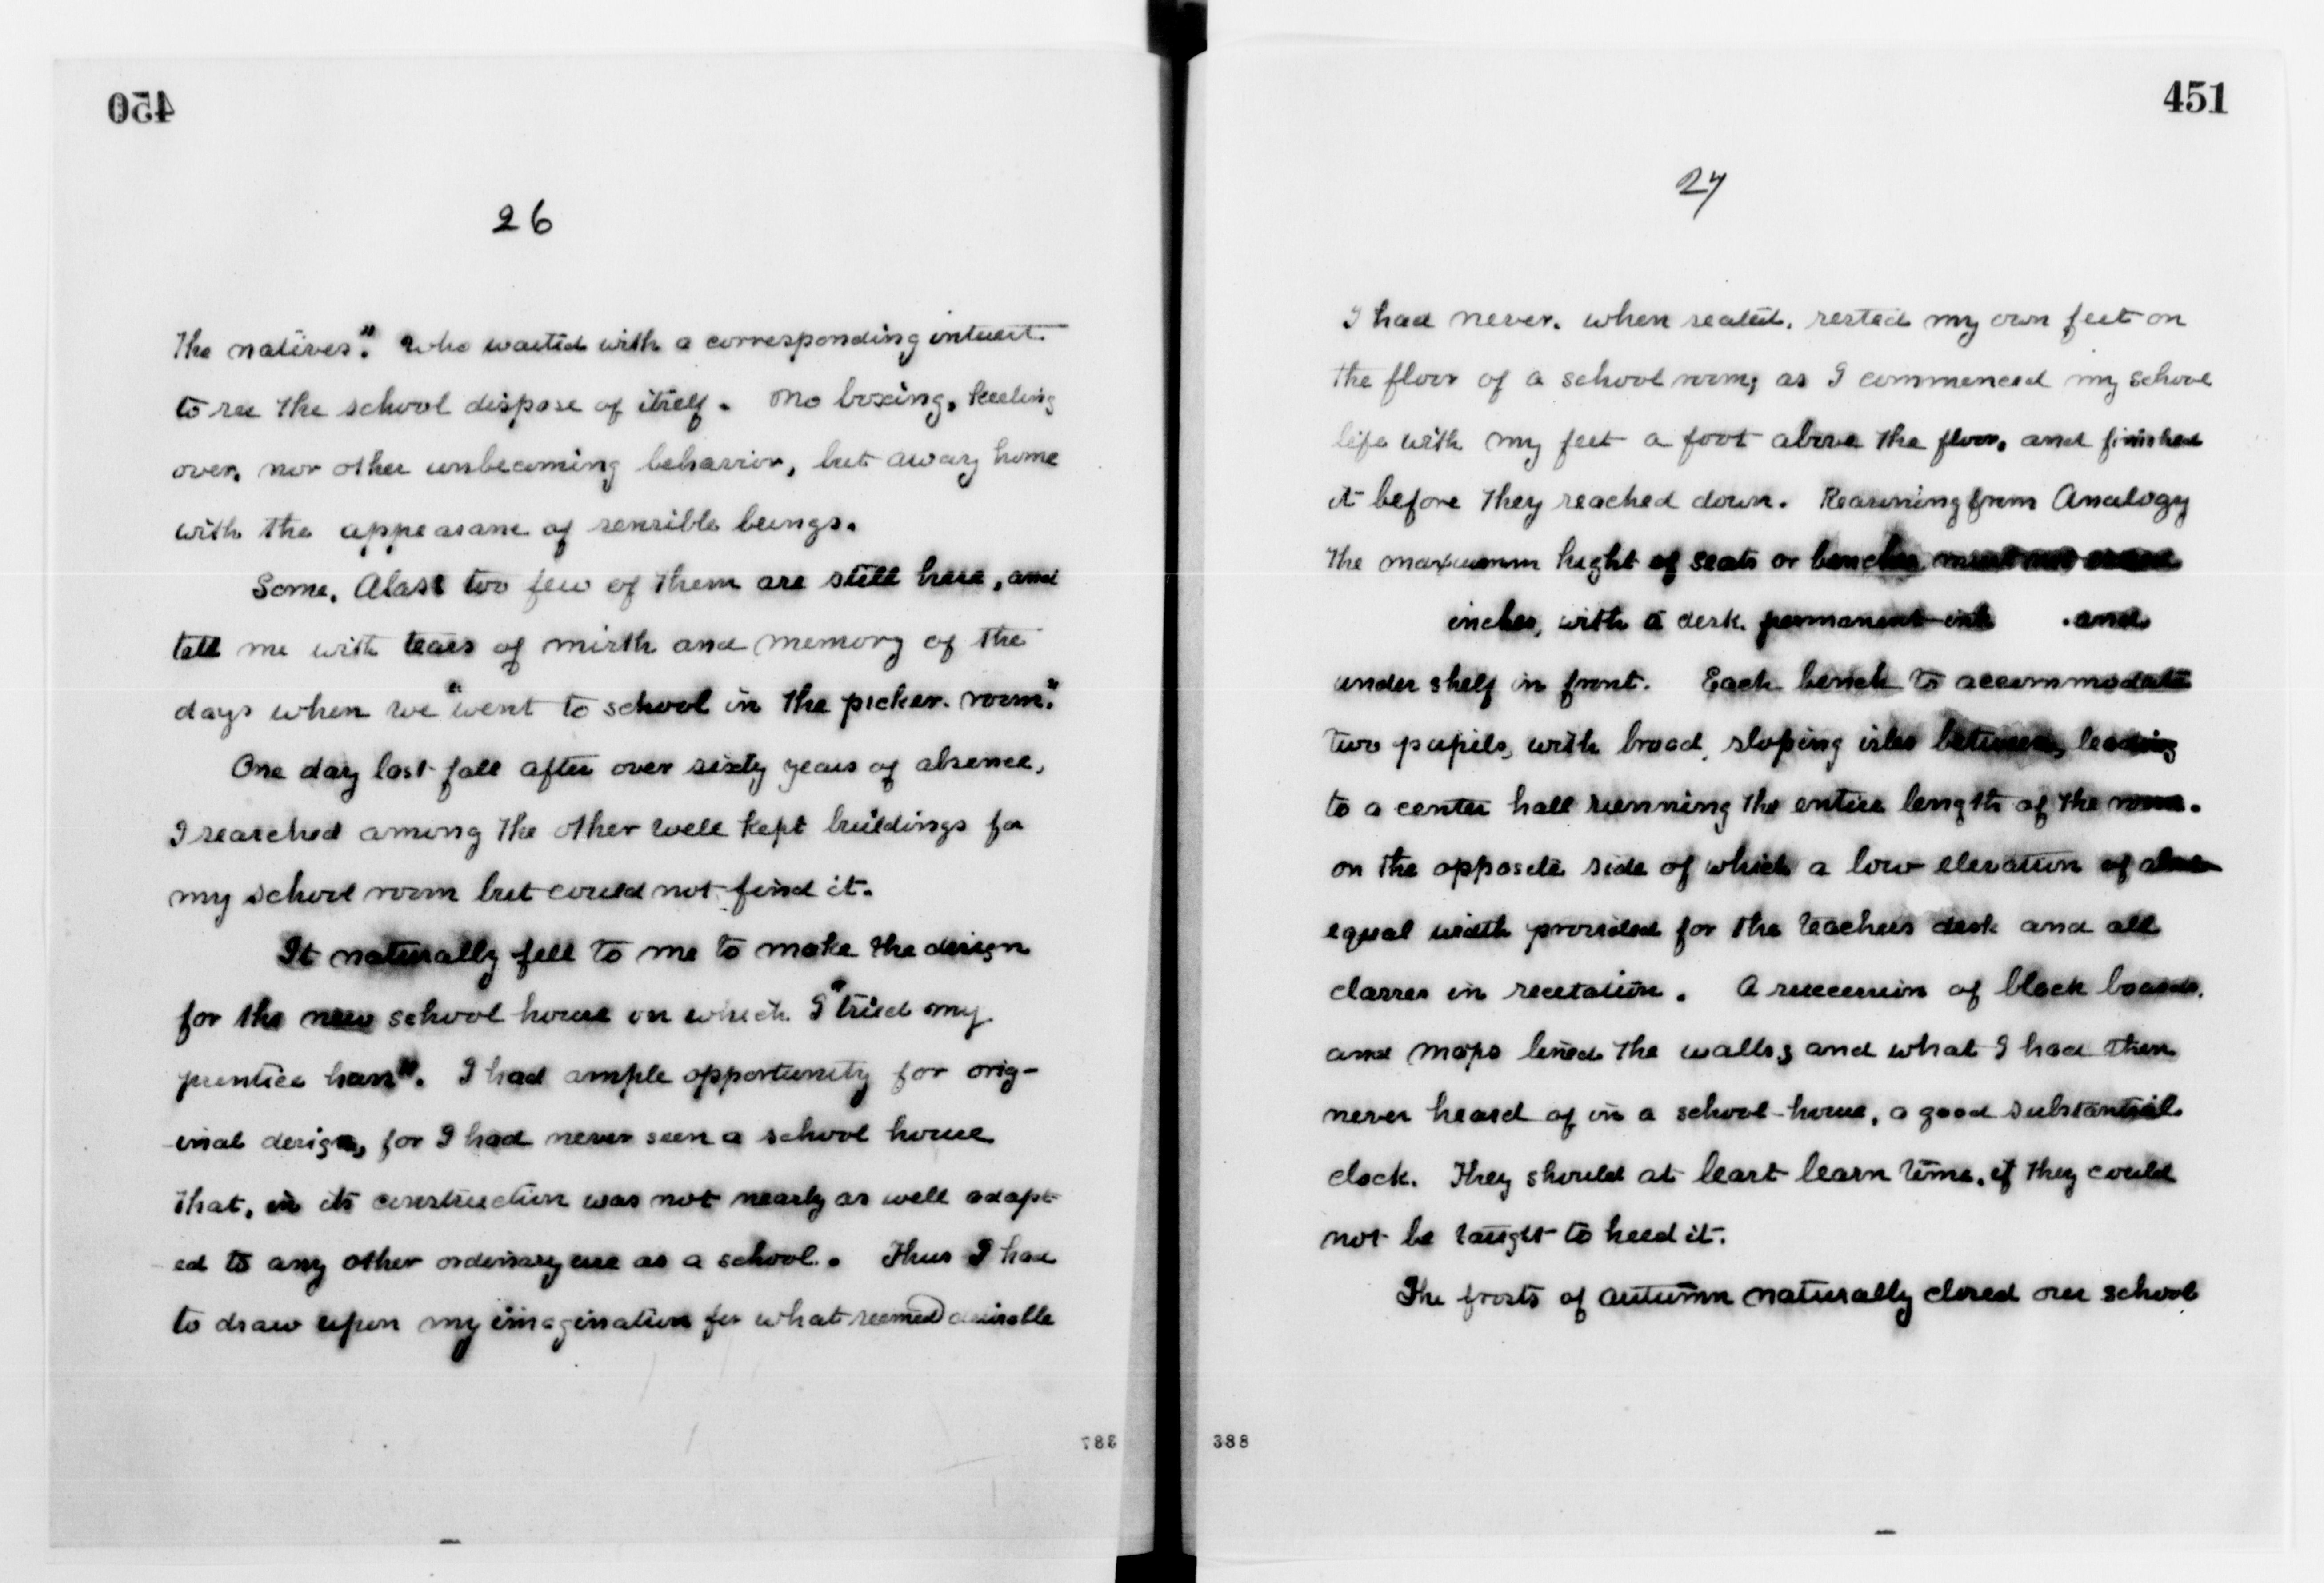 450
26
the natives". who waited with a corresponding interest
to see the school dispose of itself. No boxing, keeling
over, nor other unbecoming behavior, but away home
with the appearance of sensible beings.
Some, Alas! too few of them are still here, and
tell me with tears of mirth and memory of the
days when we "went to school in the picker-room."
One day last fall after over sixty years of absence,
I searched among the other well kept buildings for
my school room but could not find it.
It naturally fell to me to make the design
for the new school house on which I "tried my
prentice han". I had ample opportunity for orig-
inal design, for I had never seen a school house
that, in its construction was not nearly as well adapt
ed to any other ordinary use as a school. Thus I had
to draw upon my imagination for what seemed desirable
387
451
27
I had never, when seated, rested my own feet on
the floor of a school room; as I commenced my school
life with my feet a foot above the floor, and finished
it before they reached down. Reasoning from Analogy
The maximum hight of seats or benches must not exceed
inches, with a desk. permanent ink . and
under shelf in front. Each bench to accommodate
two pupils, with broad, sloping isles between, leading
to a center hall running the entire length of the room.
on the opposite side of which a low elevation of
equal width provided for the teachers desk and all
classes in recetation. A succession of black boards,
and maps lined the walls; and what I had then
never heard of in a school-house, a good substantial
clock. They should at least learn time, if they could
not be taught to heed it.
The frosts of autumn naturally closed our school
388